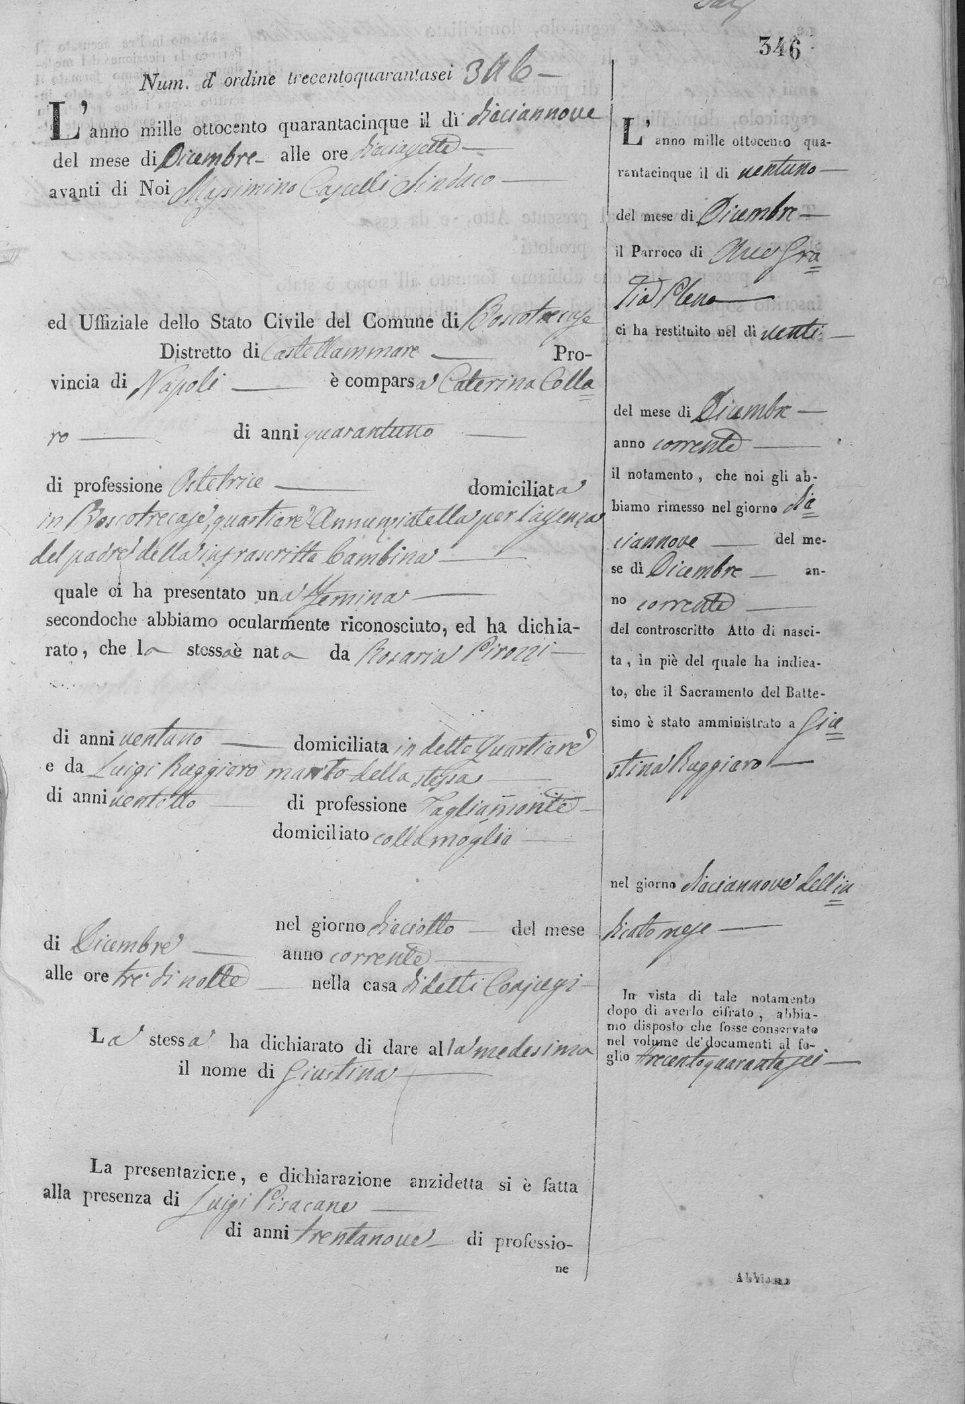 346
Num. d'ordine trecentoquarantasei 346
L'anno mille ottocento quarantacinque il dì diciannove
del mese di Dicembre alle ore
avanti di Noi Massimino Caselli Sindaco
ed Uffiziale dello Stato Civile del Comune di Boscotrecase
Distretto di Castellammare Pro-
vincia di Napoli è comparsa Caterina Colla=
ro di anni quarantuno
di professione Ostetrice domiciliata
in Boscotrecase, quartiere Annunziatella per l'assenza
del padre della infrascritta bambina
quale ci ha presentato una femina
secondoche abbiamo ocularmente riconosciuto, ed ha dichia-
rato, che la stessa è nata da Rosaria Pirozzi
di anni ventuno domiciliata in detto Quartiere
e da Luigi Ruggiero marito della stessa
di anni ventotto di professione Tagliamonte
domiciliato colla moglie
nel giorno diciotto del mese
di Dicembre anno corrente
alle ore tre di notte nella casa di detti Conjugi
La stessa ha dichiarato di dare alla medesima
il nome di Giustina
La presentazione, e dichiarazione anzidetta si è fatta
alla presenza di Luigi Pisacane
di anni trentanove di professio-
ne
L'anno mille ottocento qua-
rantacinque il dì ventuno
del mese di Dicembre
il Parroco di Ave Gra=
tia Plena
ci ha restituito nel dì venti
del mese di Dicembre
anno corrente
il notamento, che noi gli ab-
biamo rimesso nel giorno di=
ciannove del me-
se di Dicembre an-
no corrente
del controscritto Atto di nasci-
ta, in piè del quale ha indica-
to, che il Sacramento del Batte-
simo è stato amministrato a Giu=
stina Ruggiero
nel giorno diciannove dell'in=
dicato mese
In vista di tale notamento
dopo di averlo cifrato, abbia-
mo disposto che fosse conservato
nel volume de' documenti al fo-
glio trecentoquarantasei
Abbiamo